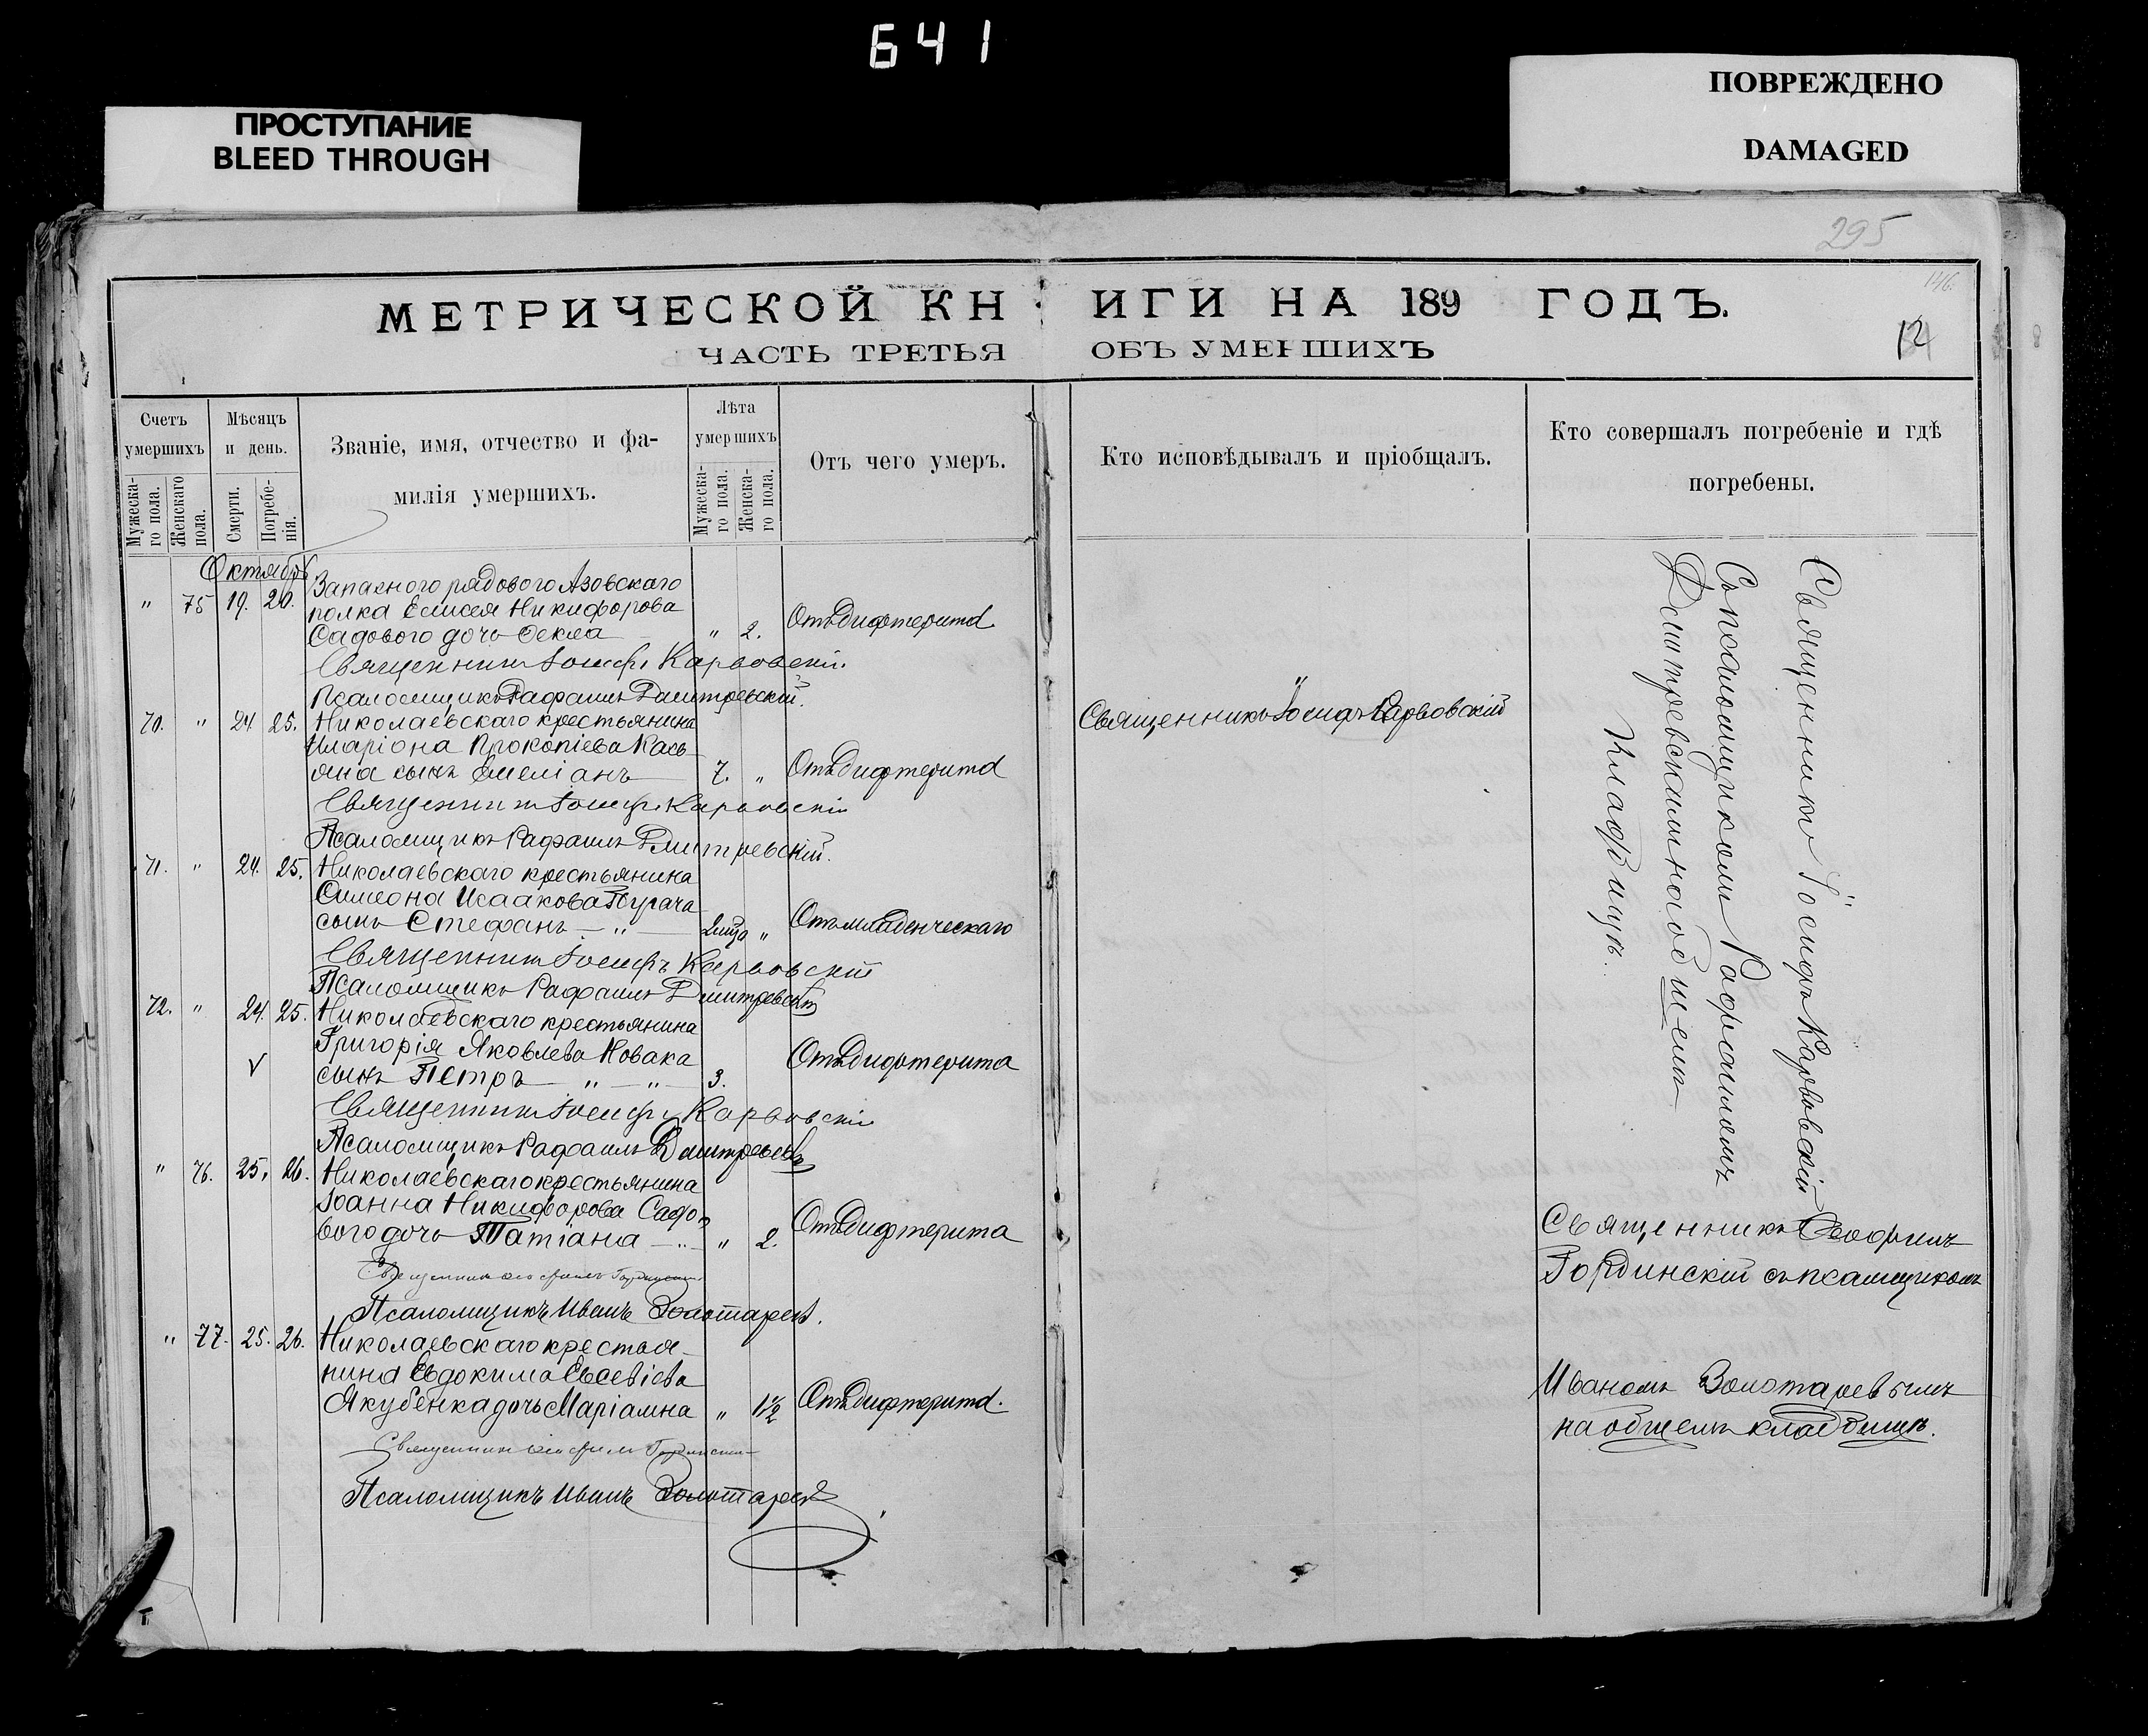 641
ПРОСТУПАНИЕ
BLEED THROUGH
ПОВРЕЖДЕНО
DAMAGED
295
146.
12
МЕТРИЧЕСКОЙ КНИГИ НА 189 ГОДЪ.
ЧАСТЬ ТРЕТЬЯ ОБЪ УМЕРШИХЪ
Счетъ умершихъ
Мужескаго пола.
Женскаго пола.
Мѣсяцъ и день.
Смерти.
Погребенія.
Званіе, имя, отчество и фамилія умершихъ.
Лѣта умершихъ
Мужескаго пола.
Женскаго пола.
Отъ чего умеръ.
Кто исповѣдывалъ и пріобщалъ.
Кто совершалъ погребеніе и гдѣ погребены.
Октябрь
Запаснаго рядоваго Азовскаго
" 75 19. 20. полка Елисея Никифорова
Садового дочь Ѳекла " 2. Отъ дифтерита
Священникъ Іосифъ Карвовскій.
Псаломщикъ Рафаилъ Дмитревскій.
70. " 24 25. Николаевскаго крестьянина
Иларіона Прокопіева Кась
яна сынъ Емеліанъ 7. " Отъ дифтерита
Священникъ Іосифъ Карвовскій
Псаломщикъ Рафаилъ Дмитревскій.
71. " 24. 25. Николаевскаго крестьянина
Симеона Исаакова
сынъ Стефанъ " " Отъ младенческаго
Священникъ Іосифъ Карвовскій
Псаломщикъ Рафаилъ Дмитревскій
72. " 24. 25. Николаевскаго крестьянина
Григорія Яковлева Новака
сынъ Петръ " " 3. Отъ дифтерита
Священникъ Іосифъ Карвовскій
Псаломщикъ Рафаилъ Дмитревскій
" 76. 25. 26. Николаевскаго крестьянина
Іоанна Никифорова Садо-
вого дочь Татіана " " 2. Отъ дифтерита
Священникъ Ѳеофилъ Гординскій
Псаломщикъ Иванъ Золотаревъ.
" 77. 25. 26. Николаевскаго крестья-
нина Евдокима Евсевіева
Якубенка дочь Маріамна " 1½ Отъ дифтерита.
Священникъ Ѳеофилъ Гординскій
Псаломщикъ Иванъ Золотаревъ
"
Священникъ Іосифъ Карвовскій
Священникъ Іосифъ Карвовскій
Съ псаломщикомъ Рафаиломъ
Дмитревскимъ на общемъ
кладбищѣ.
Священникъ Ѳеофилъ
Гординскій съ псаломщикомъ
Иваномъ Золотаревымъ
на общемъ кладбищѣ.